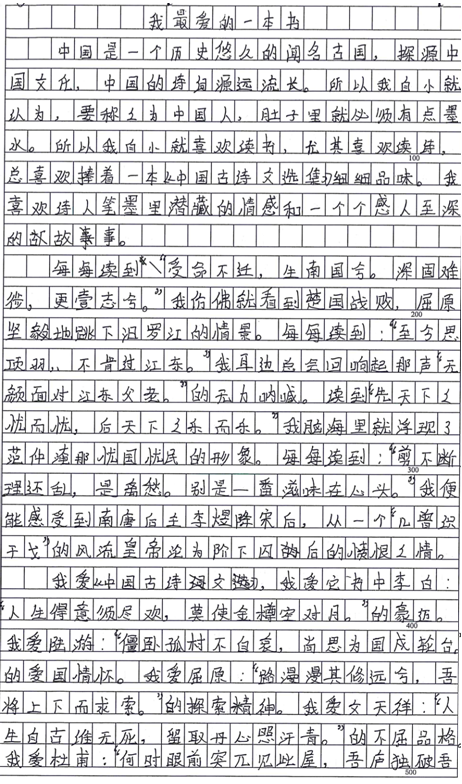 我最爱的一本书
中国是一个历史悠久的闻名古国，探源中
国文化，中国的诗句源远流长。所以我自小就
认为，要称之为中国人，肚子里就必须有点墨
水。所以我自小就喜欢读书，尤其喜欢读诗，
100
总喜欢捧着一本《中国古诗文选集》细细品味。我
喜欢诗人笔墨里潜藏的情感和一个个感人至深
的故事。
每每读到“受命不迁，生南国兮。深固难
徙，更壹志兮。”我仿佛就看到楚国战败，屈原
200
坚毅地跳下汨罗江的情景。每每读到：“至今思
项羽，不肯过江东。”我耳边总会回响起那声“无
颜面对江东父老。”的无力呐喊。读到“先天下之
忧而忧，后天下之乐而乐。”我脑海里就浮现了
范仲淹那忧国忧民的形象。每每读到：“剪不断
300
理还乱，是离愁。别是一番滋味在心头。”我便
能感受到南唐后主李煜降宋后，从一个“几曾识
干戈”的风流皇帝沦为阶下囚的后的愤恨之情。
我爱《中国古诗文选》，我爱它书中李白：
“人生得意须尽欢，莫使金樽空对月。”的豪迈。
400
我爱陆游：“僵卧孤村不自哀，尚思为国戍轮台。”
的爱国情怀。我爱屈原：“路漫漫其修远兮，吾
将上下而求索。”的探索精神。我爱文天祥：“人
生自古谁无死，留取丹心照汗青。”的不屈品格。
我爱杜甫：“何时眼前突兀见此屋，吾庐独破吾
500